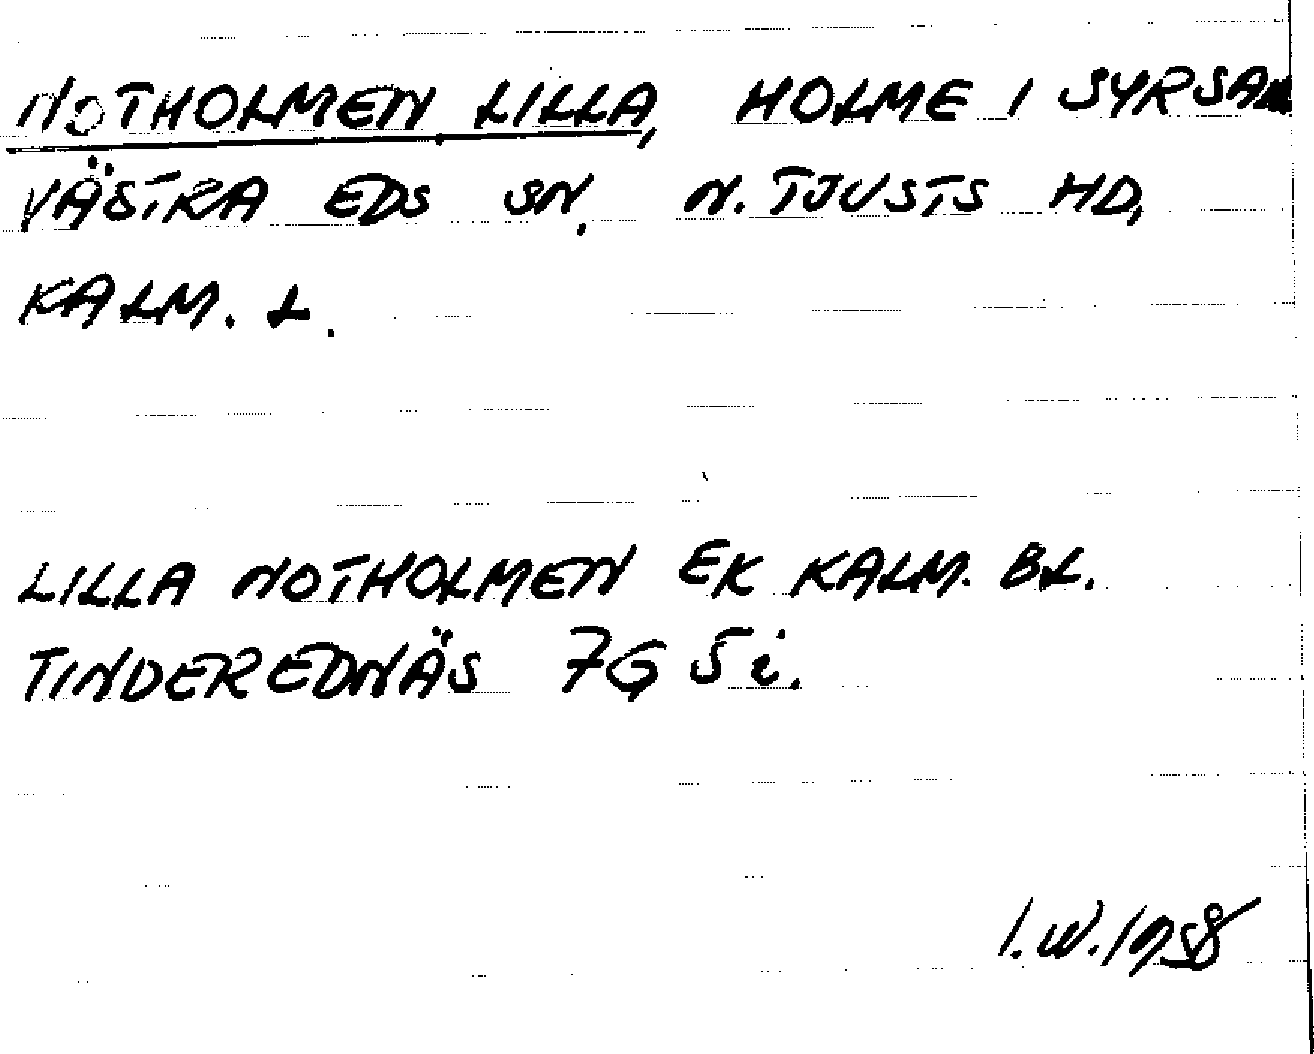 NOTHOLMEN LILLA, HOLME I SYRSAN
VÄSTRA EDS SN. N. TJUSTS HD,
KALM. L.
LILLA NOTHOLMEN EK KALM. BL.
TINDEREDNÄS 7G 5i.
I.W. 1958